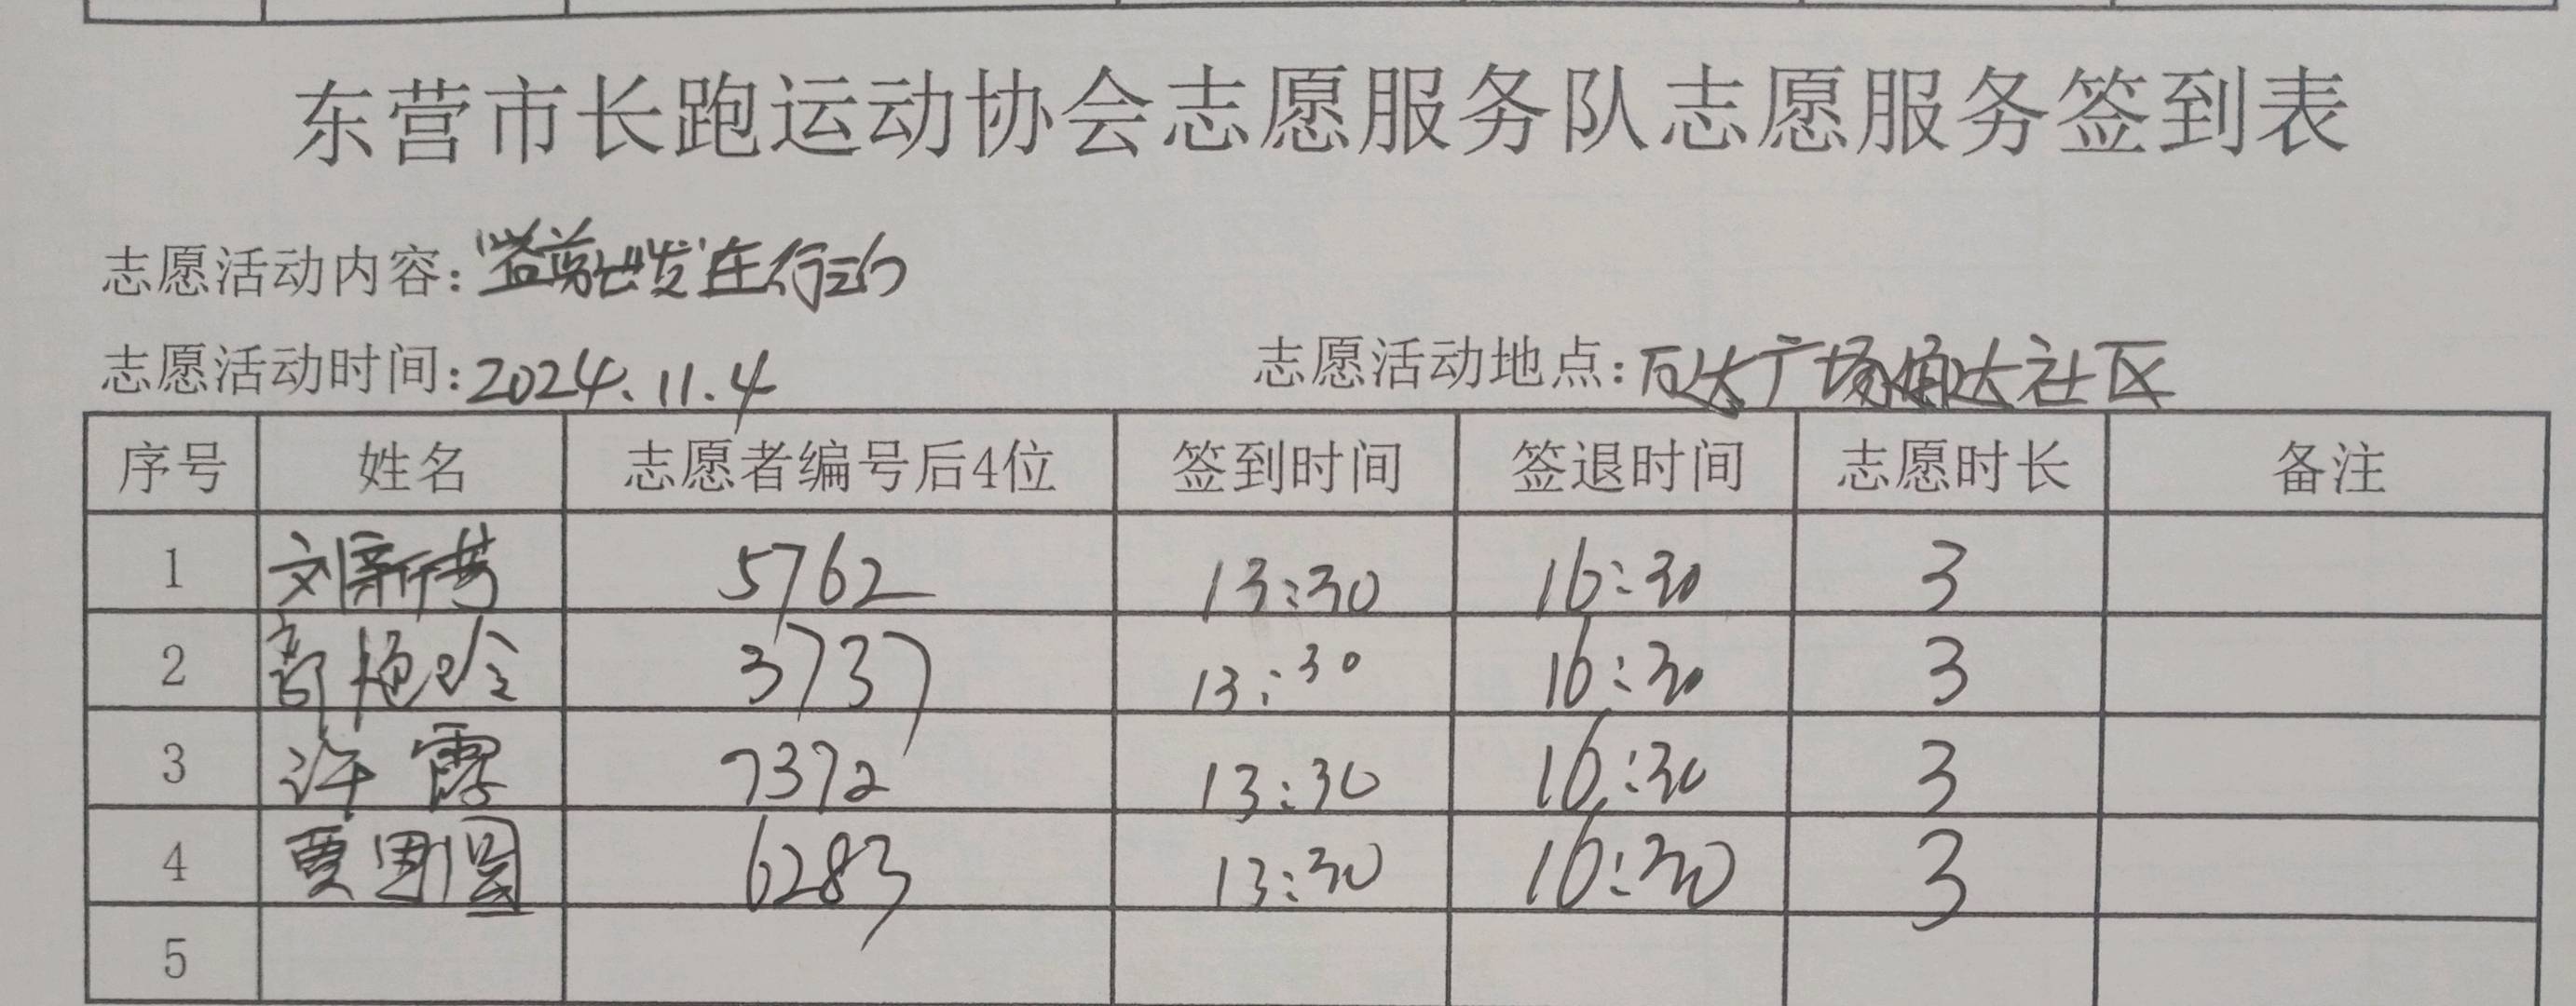 东营市长跑运动协会志愿服务队志愿服务签到表
志愿活动内容:"益剪出发"在行动
志愿活动时间:2024.11.4 志愿活动地点:万达广场通达社区
序号 姓名 志愿者编号后4位 签到时间 签退时间 志愿时长 备注
1 刘新芳 5762 13:30 16:30 3
2 高艳玲 3737 13:30 16:30 3
3 许霞 7372 13:30 16:30 3
4 贾团圆 6283 13:30 16:30 3
5